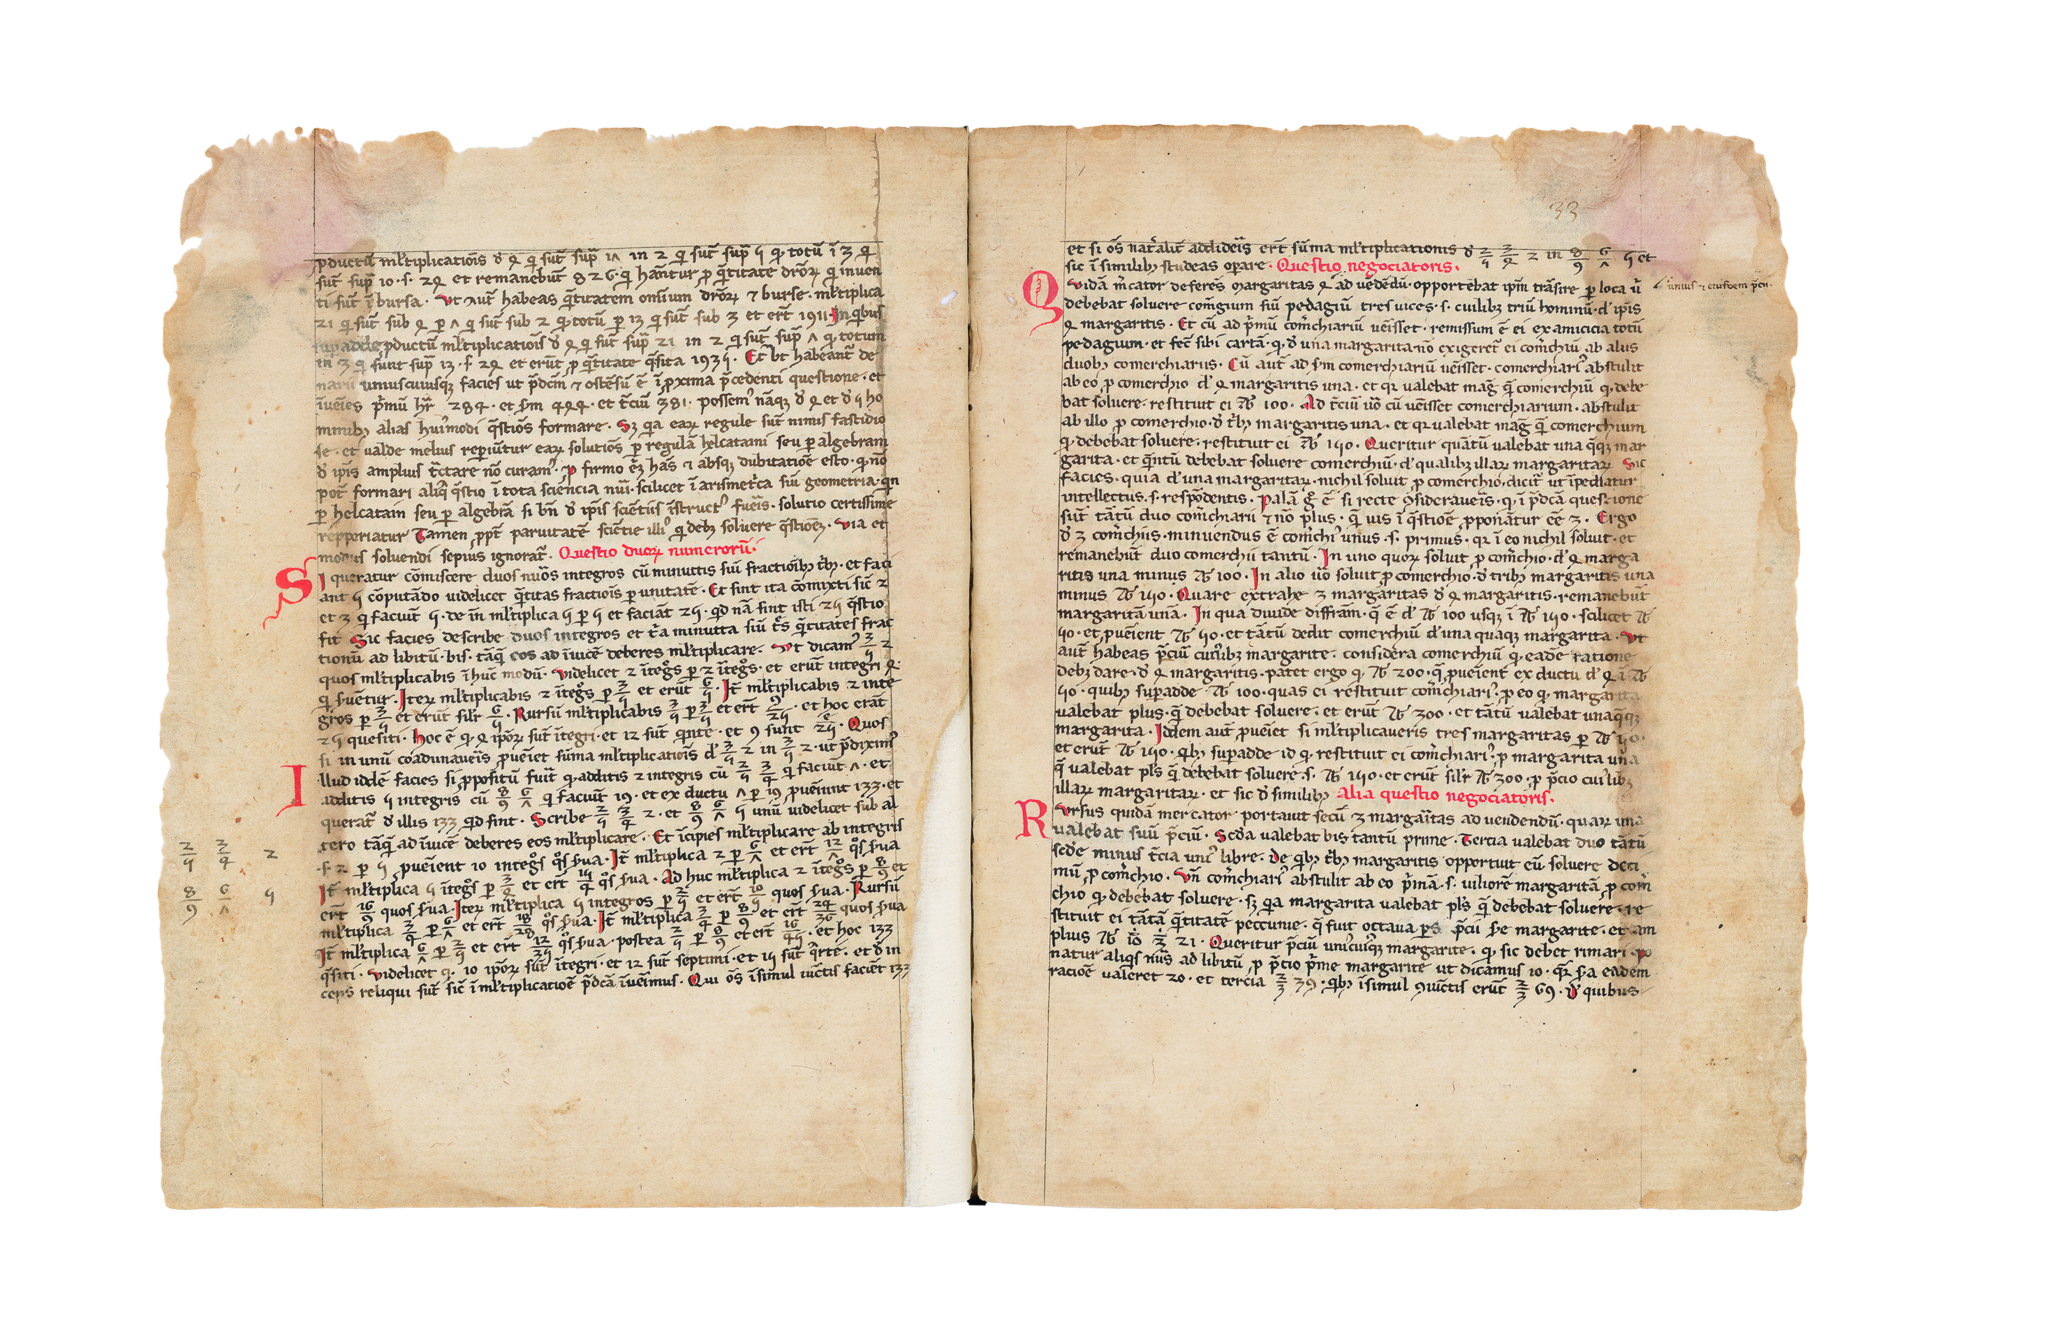 ꝓductū ml̄tiplicatiōis đ 4 qͥ sūt sup̄ 17 in 2 qͥ sūt sup̄ 5 qͥ totū ī 3 qͥ
sūt sup̄ 10 · s · 24 et remanebūt 826 · qͥ hāntur ꝓ q̄titate dr̄oꝝ qͥ inuen
ti sūt ī bursa · Ut aūt habeas q̄titatem om̄ium dr̄oꝝ ⁊ burse · ml̄tiplica
21 qͥ sūt sub 4 ꝑ 7 qͥ sūt sub 2 qͥ totū ꝑ 13 qͥ sūt sub 3 et er̄t 1911 · In qͥbus
supadde ꝓductū ml̄tiplicatiōis đ 4 qͥ sūt sup̄ 21 in 2 qͥ sūt sup̄ 7 qͥ totum
in 3 qͥ sunt sup̄ 13 · s · 24 et erūt ꝓ q̄titate q̄sita 1935 · Et ut habeant̄ de
narii uniuscuiusqꝫ facies ut p̄dc̄m ⁊ ostēsū ē ī ꝓxima p̄cedenti questione · et
īueīes p̄mū hr̄e 284 · et s̄m 444 · et t̄ciū 381 · possem⁹ nāqꝫ đ 4 et đ 5 ho
minibꝫ alias huiⁱmodi q̄stiōs formare · Sꝫ qͥa eaꝝ regule sūt nimis fastidio
se · et ualde melius reꝑiūtur eaꝝ solutiōs ꝑ regulā helcataimi seu ꝑ algebram
đ ip̄is amplius t̄ctare nō curam⁹ · Pro firmo eīꝫ hās ⁊ absqꝫ dubitatiōe esto · qͥ nō
pot̄ formari aliq̄ q̄stio ī tota sciēncia nūi · scilicet ī arismet̄ca siū geometria · qͥn
ꝑ helcataim seu ꝑ algebrā si bn̄ đ ip̄is sciētiis īstruct⁹ fueīs · solutio certissime
repperiatur Tamen ꝓpt̄ paruitatē sciētie illi⁹ qͥ debꝫ soluere q̄stiōeꝫ · Uia et
modus soluendi sepius ignorat̄ · Questio duoꝝ numeroꝝ ·
Si queratur cōmiscere duos nūos integros cū minuttis siū fractiōibꝫ t̄bꝫ · et faci
ant 5 cōputādo uidelicet q̄titas fractiōis ꝑ unitatē · Et sint ita cōmixti sic̄ 2
et 3 qͥ faciūt 5 · de īn ml̄tiplica 5 ꝑ 5 et faciāt 25 · qͥd nā sint isti 25 q̄stio
fit Sic facies describe duos integros et t̄a minutta siū t̄s q̄titates frac
tionū ad libitū · bis · tāq̄ eos ad īuicē deberes ml̄tiplicare · Ut dicam⁹ 3/5 2
quos ml̄tiplicabis ī hūc modū · Uidelicet 2 ītegͦs ꝑ 2 ītegͦs · et erūt integri 4 ·
qͥ s̄uētur · Iteꝝ ml̄tiplicabis 2 ītegͦs ꝑ 3/5 et erūt 6/5 · It̄ ml̄tiplicabis 2 inte
gros ꝑ 3/5 et erūt silr̄ 6/5 · Rursū ml̄tiplicabis 3/5 ꝑ 3/5 et er̄t 9/25 · et hoc erāt
25 quesiti · hoc ē qͥ 4 ip̄oꝝ sūt ītegri · et 12 sūt qͥnte · et 9 sunt /25 · Quos
si in unū coadunaueīs ꝓueīet sūma ml̄tiplicatiōis đ 3/5 2 in 3/5 2 · ut p̄dixim⁹
Illud iddē facies si ꝓpositū fuīt qͥ additis 2 integris cū 2/5 3/4 qͥ faciūt 7 · et
additis 5 integris cū 8/9 6/7 qͥ facuūt 19 · et ex ductu 7 ꝑ 19 ꝓueīunt 133 · et
querat̄ đ illis 133 qͥd sint · Scribe 2/5 3/4 2 · et 8/9 6/7 5 unū uidelicet sub al
tero tāq̄ ad īuicē deberes eos ml̄tiplicare · Et īcipies ml̄tiplicare ab integris
· s · 2 ꝑ 5 ꝓueīent 10 integͦs qͦs s̄ua · It̄ ml̄tiplica 2 ꝑ 6/7 et er̄t 12/7 qͦs s̄ua
It̄ ml̄tiplica 5 ītegͦs ꝑ 3/4 et er̄t 15/4 qͦs s̄ua · Ad huc ml̄tiplica 2 ītegͦs ꝑ 8/9 et
er̄t 16/9 quos s̄ua · Iteꝝ ml̄tiplica 5 integros ꝑ 2/5 et er̄t 10/5 quos s̄ua · Rursū
ml̄tiplica 3/4 ꝑ 6/7 et er̄t 18/28 qͦs s̄ua · It̄ ml̄tiplica 3/4 ꝑ 8/9 et er̄t 24/36 quos s̄ua
It̄ ml̄tiplica 6/7 ꝑ 2/5 et er̄t 12/35 qͦs s̄ua · postea 2/5 ꝑ 8/9 et er̄t 16/45 · et hoc 133
q̄siti · Uidelicet qͥ · 10 ip̄oꝝ sūt ītegri · et 12 sūt septimi · et 15 sūt q̄rte · et đ in
ceps reliqui sūt sic̄ ī ml̄tiplicatiōe p̄dc̄ā īueīmus · Qui ōs īsimul iūctis faciēt 133
2/5 3/4 2
8/9 6/7 5
33
et si ōs nat̄alit̄ addideīs er̄t sūma ml̄tiplicationis đ 2/5 3/4 2 in 8/9 6/7 5 et
sic ī similibꝫ studeas oꝑare · Questio negociatoris ·
Quidā m̄cator deferēs margaritas 4 ad uēdēdū · opportēbat ip̄m trāsire ꝑ loca ū
unius ⁊ eiusdem p̄cii ·
debebat soluere com̄gium siū pedagiū tres uices · s · cuilibꝫ triū hominū · đ ip̄is
4 margaritis · Et cū ad p̄mū com̄chiariū ueīsset · remissum ē ei ex amicicia totū
pedagium · et fec̄ sibi cartā · qͥ đ una margarita nō exigeret̄ ei com̄chiū ab aliis
duobꝫ comerchiariis · Cū aūt ad s̄m comerchiariū ueīsset · comerchiari⁹ abstulit
ab eo ꝓ comerchio đ 4 margaritis una · et qꝛ ualebat maḡ q̄ comerchiū qͥ debe
bat soluere · restituit ei ℔ 100 · Ad t̄ciū ūo cū ueīsset comerchiarium · abstulit
ab illo ꝓ comerchio · đ t̄bꝫ margaritis una · et qꝛ ualebat maḡ q̄ comerchium
qͥ debebat soluere · restituit ei ℔ 150 · Queritur quātū ualebat una q̄qꝫ mar
garita · et q̄ntū debebat soluere comerchiū · đ qualibꝫ illaꝝ margaritaꝝ Sic
facies · quia đ una margaritaꝝ · nichil soluit ꝓ comerchio · dicit̄ ut īpediatur
intellectus · s · respōdentis · Palā gͦ ē si recte ꝯsideraueīs · qͥ ī p̄dc̄a questione
sūt tātū duo com̄chiarii ⁊ nō pl̄us · q̄ uis ī q̄stiōe ꝓponātur eē 3 · Ergo
đ 3 com̄chiis · minuendus ē com̄chi⁹ unus · s · primus · qꝛ ī eo nichil soluit · et
remanebūt duo comerchii tantū · In uno quoꝝ soluit ꝓ com̄chio · đ 4 marga
ritis una minus ℔ 100 · In alio ūo soluit ꝓ comerchio · đ tribꝫ margaritis una
minus ℔ 150 · Quare extrahe 3 margaritas đ 4 margaritis · remanebūt
margaritā unā · In qua diuide diffrām · q̄ ē đ ℔ 100 usqꝫ ī ℔ 150 · scilicet ℔
50 · et ꝓueīent ℔ 50 · et tātū dedit comerchiū đ una quaqꝫ margarita · Ut
aūt habeas p̄ciū cuiꝰlibꝫ margarite · considera comerchiū qͥ eadē ratione
debꝫ dare · đ 4 margaritis · patet ergo qͥ ℔ 200 · q̄ ꝓueīent ex ductu đ 4 ī ℔
50 · quibꝫ supadde ℔ 100 · quas ei restituit com̄chiari⁹ · ꝓ eo qͥ margarita
ualebat plus · q̄ debebat soluere · et erūt ℔ 300 · et tātū ualebat unaq̄qꝫ
margarita · Iddem aūt ꝓueīet si ml̄tiplicaueris tres margaritas ꝑ ℔ 50 ·
et erūt ℔ 150 · qͥbꝫ supadde id qͥ restituit ei com̄chiari⁹ · ꝓ margarita una
q̄ ualebat pl̄s q̄ debebat soluere · s · ℔ 150 · et erūt silr̄ ℔ 300 · ꝓ p̄cio cuiꝰlibꝫ
illaꝝ margaritaꝝ · et sic đ similibꝫ Alia questio negociatoris ·
Rursus quidā mercator portauit secū 3 margaītas ad uendendū · quaꝝ una
ualebat suū p̄ciū · Scđa ualebat bis tantū prime · Tercia ualebat duo tātū
secđe minus t̄cia uni⁹ libre · De qͥbꝫ t̄bꝫ margaritis opportuit eū soluere deci
mū ꝓ com̄chio · Un̄ com̄chiari⁹ abstulit ab eo p̄mā · s · uiliorē margaritā ꝓ com̄
chio qͥ debebat soluere · sꝫ qͥa margarita ualebat pl̄s q̄ debebat soluere · re
stituit ei tātā q̄titatē peccunie · q̄ fuit octaua pͣs p̄cii s̄e margarite · et am
plius ℔ 21 · Queritur p̄ciū uni⁹cuiꝰqꝫ margarite · qͥ sic debet rimari · po
natur aliqͥs nūs ad libitū ꝓ p̄cio p̄me margarite ut dicamus 10 · q̄ꝝ s̄a eadem
racioē ualeret 20 · et tercia 2/3 39 · qͥbꝫ īsimul ꝯiūctis erūt 2/3 69 · đ quibus